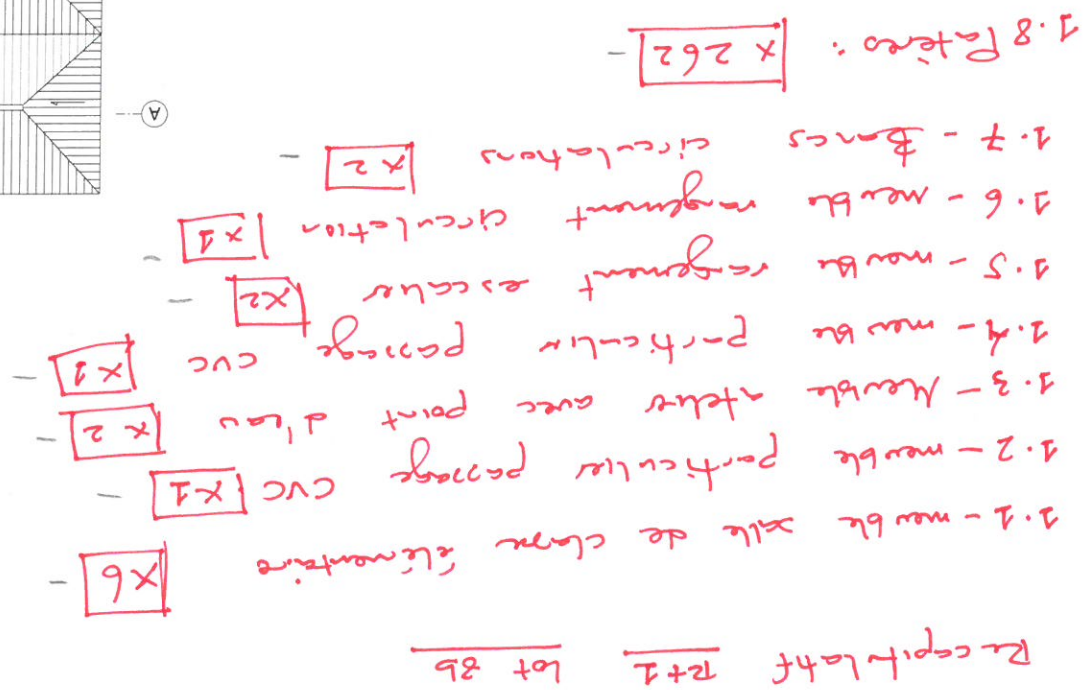 Recapitulatif R+1 lot 8b
1.1 - meuble salle de classe élémentaire x6
1.2 - meuble particulier passage CVC x1
1.3 - Meuble atelier avec point d'eau x 2
1.4 - meuble particulier passage CVC x 1
1.5 - meuble rangement escalier x2
1.6 - meuble rangement circulation x1
1.7 - Bancs circulations x 2
1.8 Patères : x 262
A